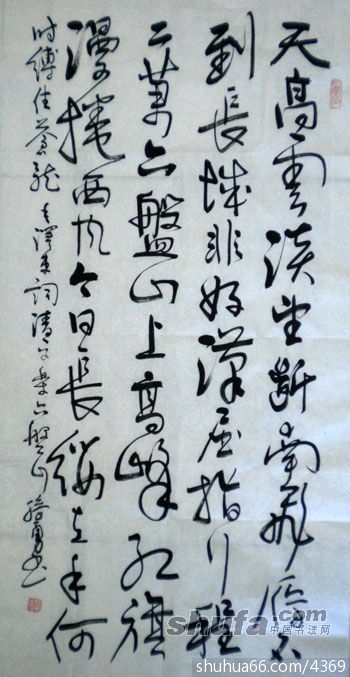 天高雲淡望斷南飛雁不
到長城非好漢屈指行程
二萬六盤山上高峰紅旗
漫捲西风今日長纓在手何
时縛住蒼龍 毛澤東詞清平樂六盤山 书
shufa.com
中国书法网
shuhua66.com/4369